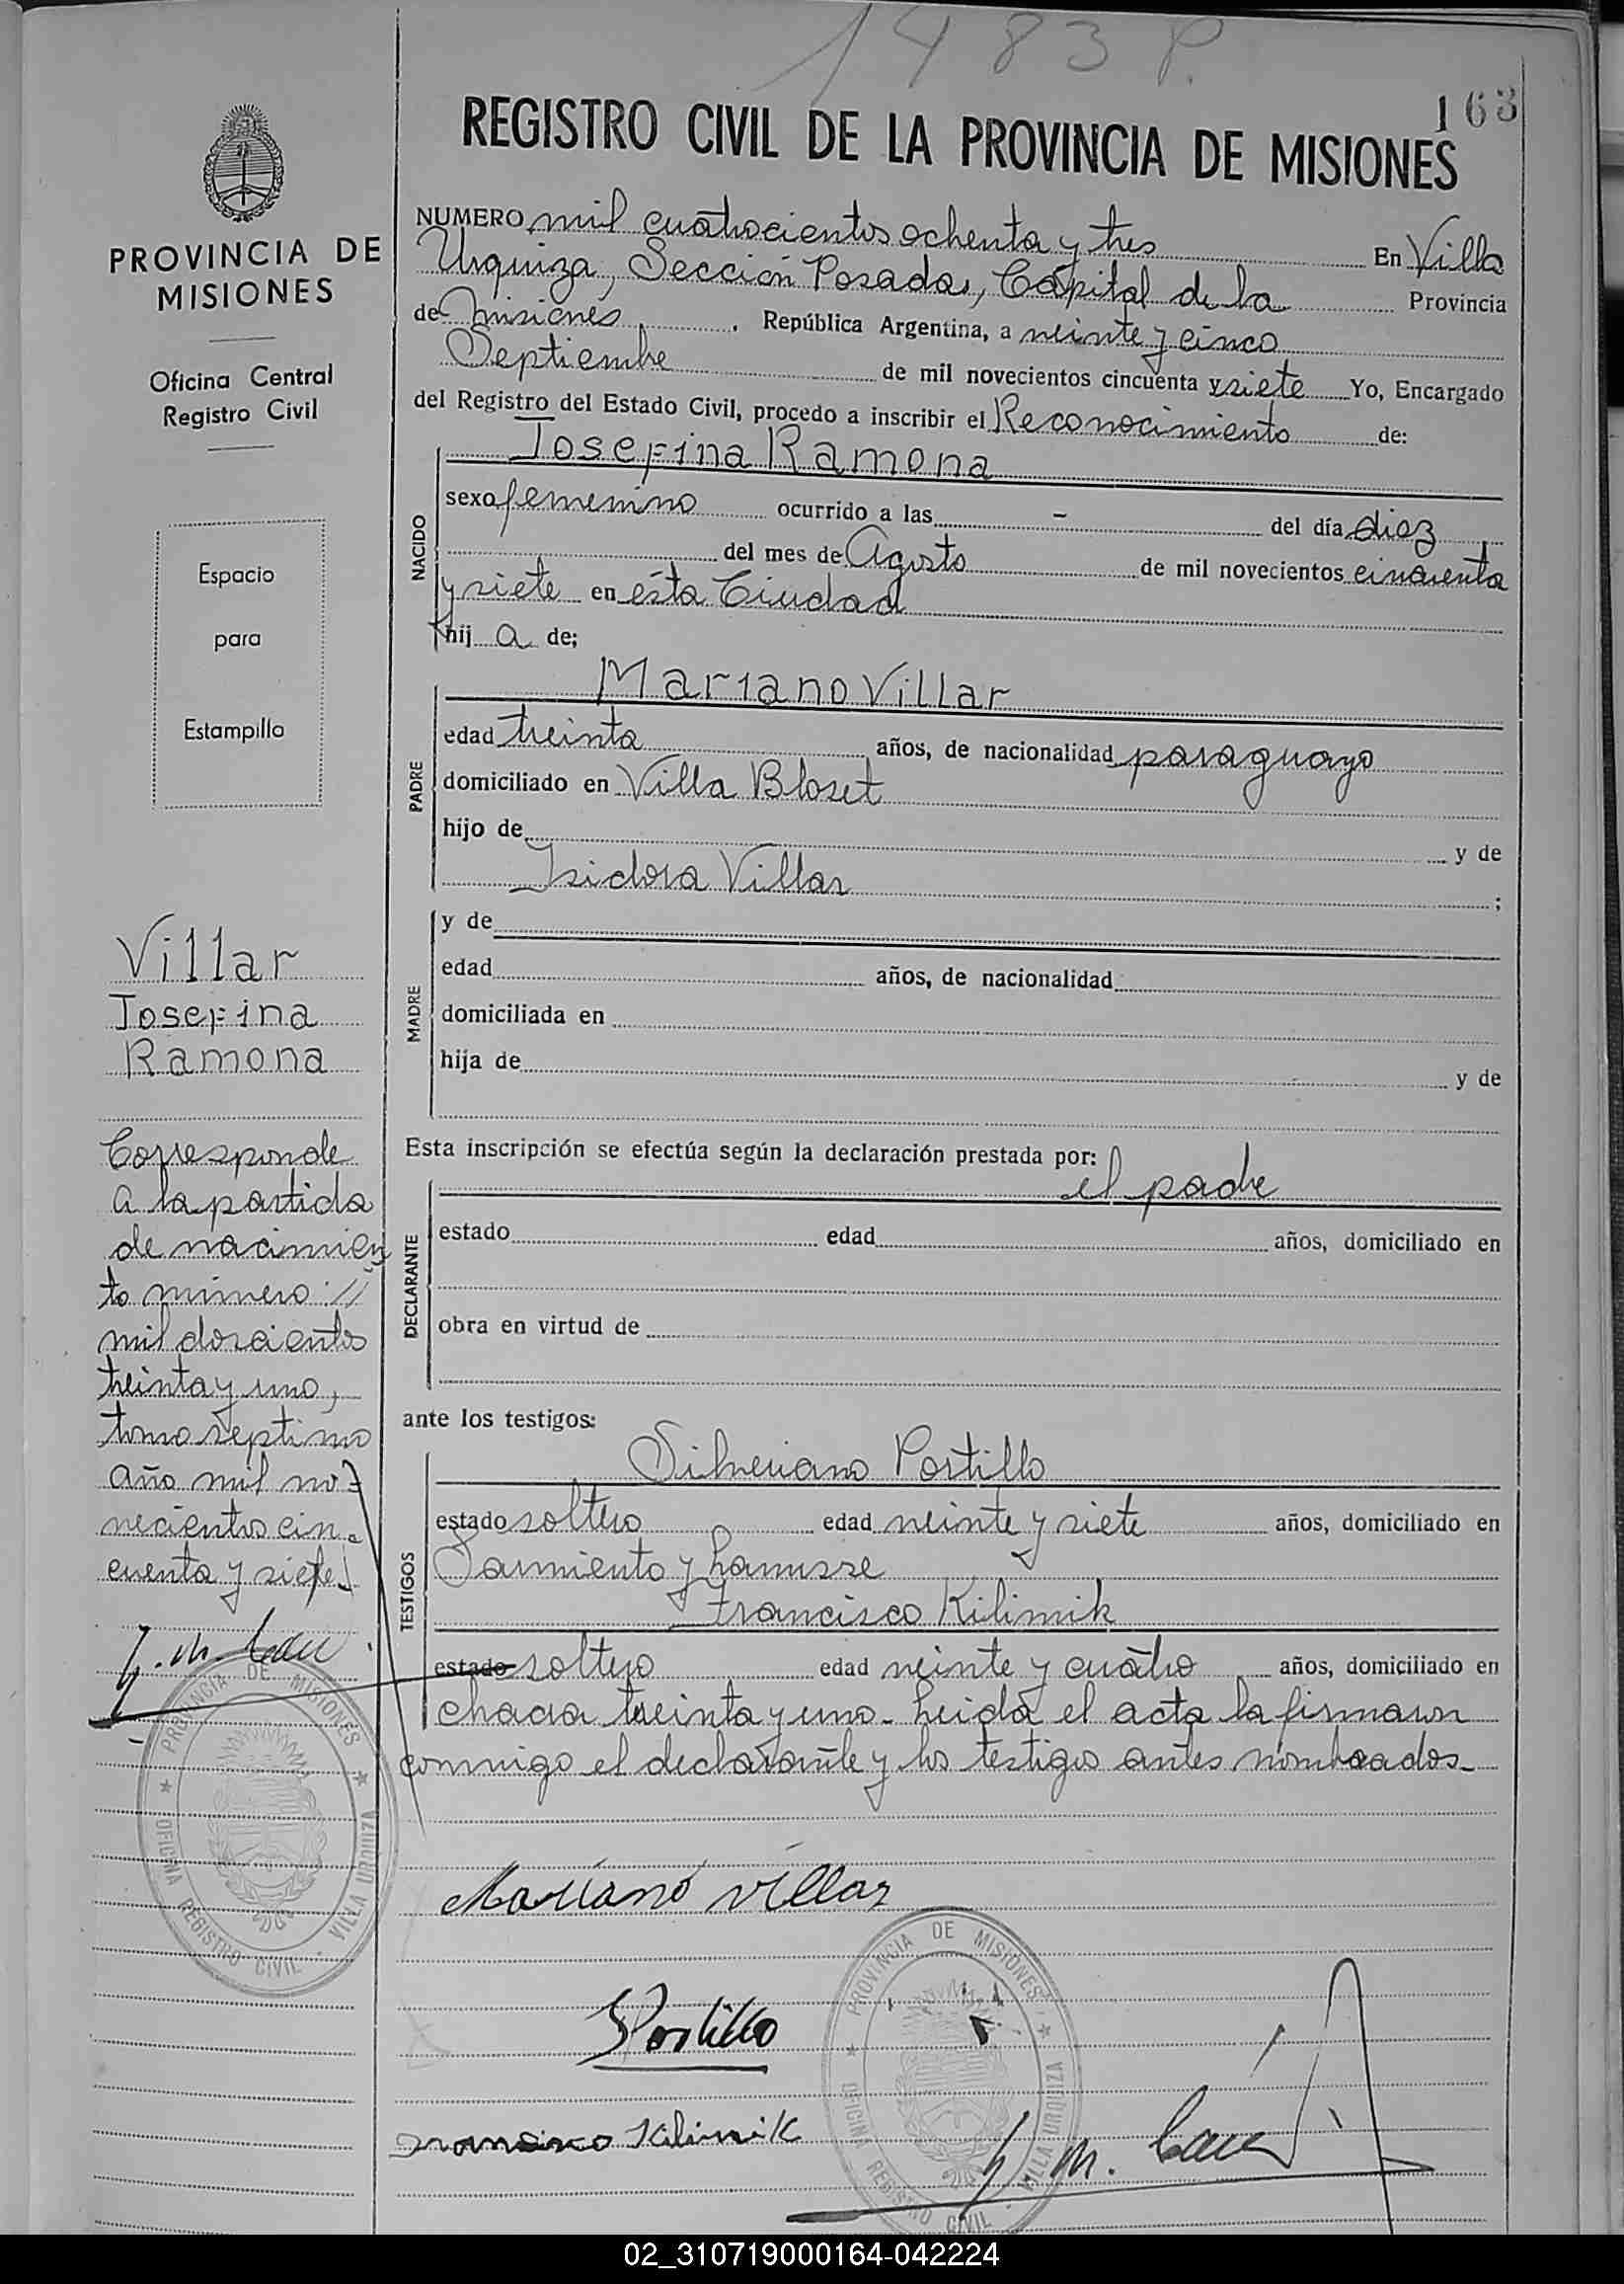 1483 P.
163
REGISTRO CIVIL DE LA PROVINCIA DE MISIONES
PROVINCIA DE
MISIONES
Oficina Central
Registro Civil
Espacio
para
Estampilla
Villar
Josefina
Ramona
Corresponde
a la partida
de nacimien
to número "
mil doscientos
treinta y uno,
tomo septimo
año mil no=
vecientos cin-
cuenta y siete.
PROVINCIA DE MISIONES
OFICINA REGISTRO CIVIL - VILLA URQUIZA
NUMERO mil cuatrocientos ochenta y tres En Villa
Urquiza, Sección Posadas, Capital de la Provincia
de Misiones, República Argentina, a veinte y cinco
Septiembre de mil novecientos cincuenta y siete Yo, Encargado
del Registro del Estado Civil, procedo a inscribir el Reconocimiento de:
Josefina Ramona
NACIDO
sexo femenino ocurrido a las - del día diez
del mes de Agosto de mil novecientos cincuenta
y siete en ésta Ciudad
hij a de;
Mariano Villar
PADRE
edad treinta años, de nacionalidad paraguayo
domiciliado en Villa Bloset
hijo de y de
Isidora Villar ;
MADRE
y de
edad años, de nacionalidad
domiciliada en
hija de y de
Esta inscripción se efectúa según la declaración prestada por:
el padre
DECLARANTE
estado edad años, domiciliado en
obra en virtud de
ante los testigos:
Silveriano Portillo
TESTIGOS
estado soltero edad veinte y siete años, domiciliado en
Sarmiento y Lanusse
Francisco Kilimik
estado soltero edad veinte y cuatro años, domiciliado en
chacra treinta y uno- Leida el acta la firmaron
conmigo el declarante y los testigos antes nombrados-
Mariano Villar
SPortillo
Francisco Kilimik
PROVINCIA DE MISIONES
OFICINA REGISTRO CIVIL - VILLA URQUIZA
02_310719000164-042224